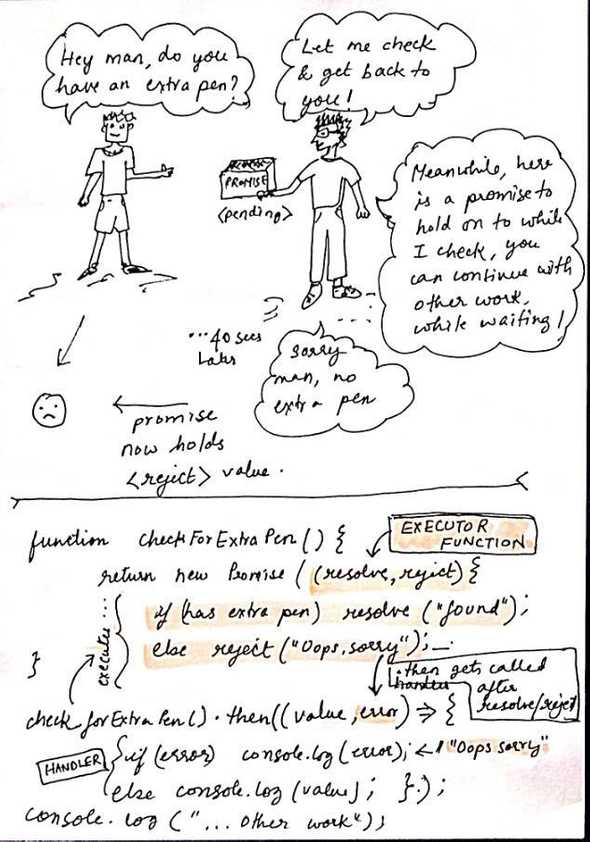 Hey man, do you
have an extra pen?
Let me check
& get back to
you!
PROMISE
<pending>
Meanwhile, here
is a promise to
hold on to while
I check, you
can continue with
other work,
while waiting!
...40 secs
Later
sorry
man, no
extra pen
promise
now holds
<reject> value.
function checkForExtraPen() {
EXECUTOR
FUNCTION
return new Promise ((resolve, reject) {
if (has extra pen) resolve ("found");
else reject ("Oops, sorry");
}
executes...
.then gets called
after
resolve/reject
checkforExtraPen().then((value, error) => {
HANDLER
if (error) console.log(error); ← // "Oops sorry"
else console.log(value); });
console.log("... other work");